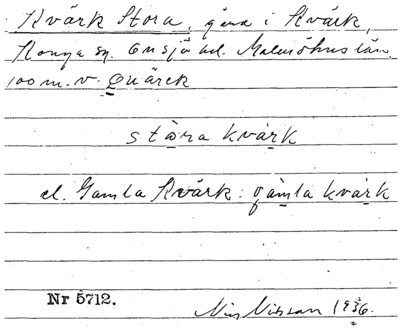 Kvärk Stora, gård i Kvärk,
Ronya sn. Onsjö hd. Malmöhus län.
100 m. v. Quärck
stọ̈ra kvärk
el. Gamla Kvärk: gámla kvärk
Nr 5712.
Nils Nilsson 1936.